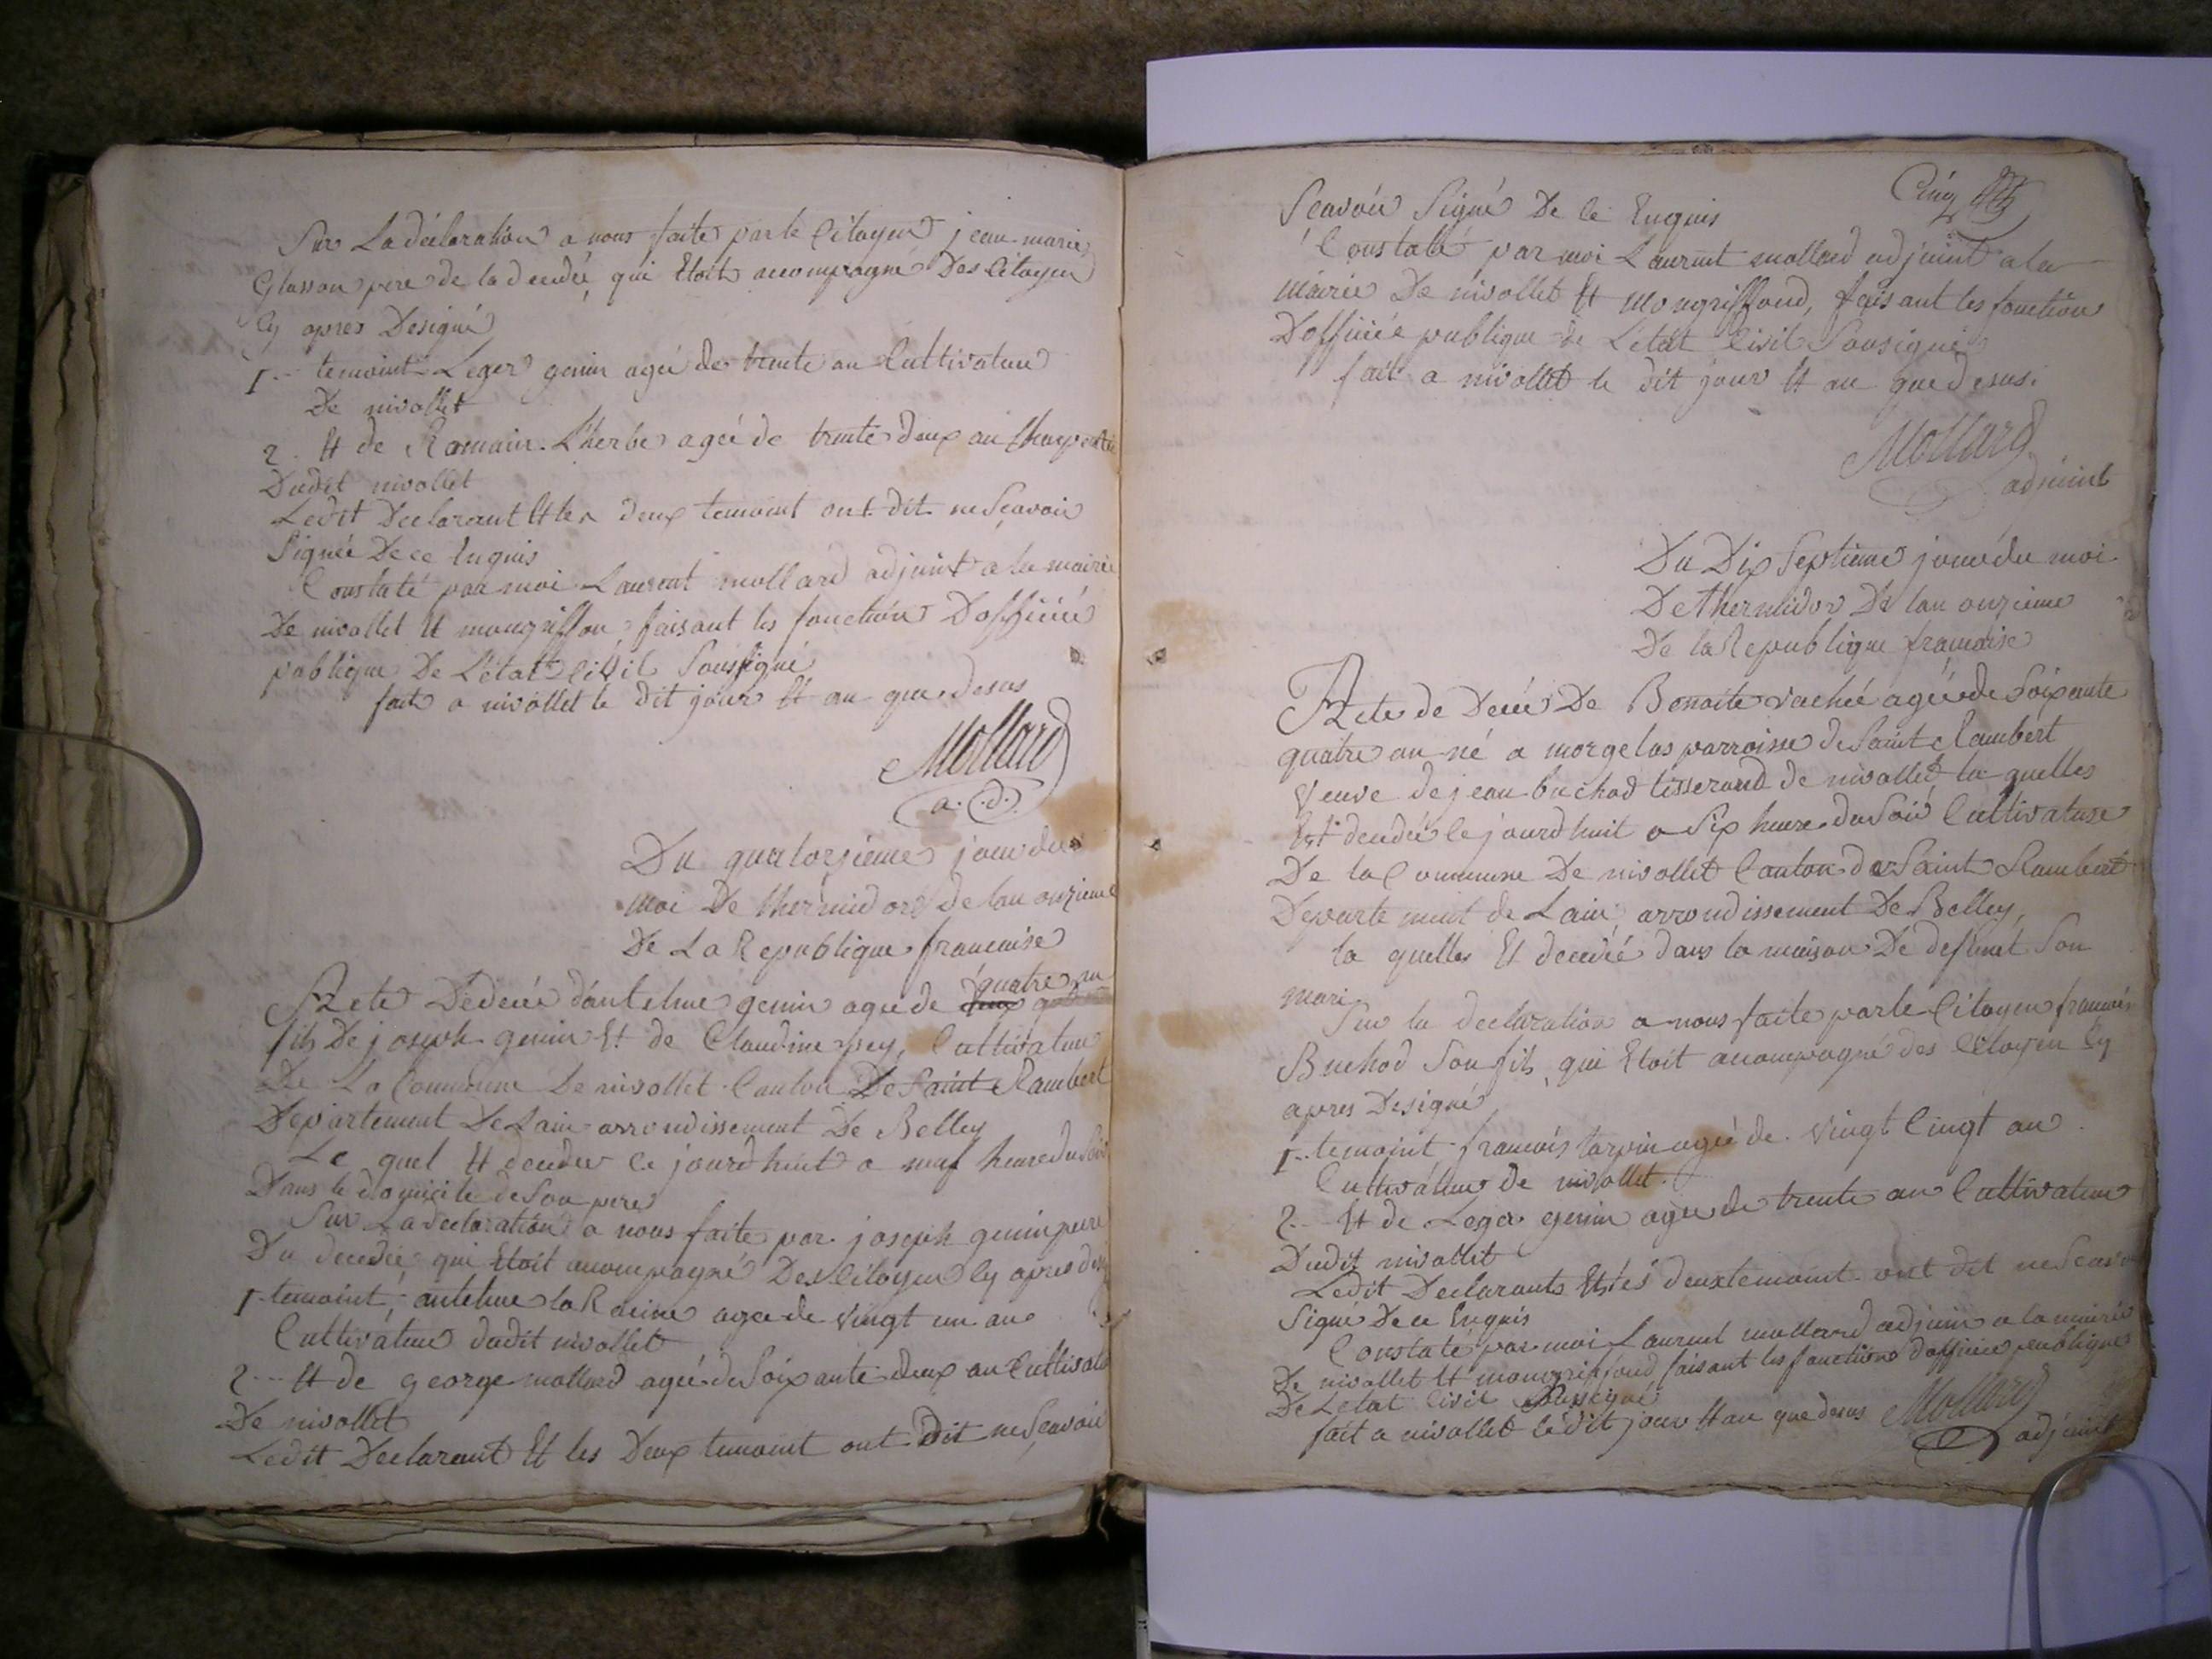 Sur La déclaration a nous faite par le Citoyen jean marie
Glasson pere de la decedée, qui Etoit accompagné Des Citoyen
Cy apres Designé
1.. temoint Leger genin ageé de trente an Cultivateur
De nivollet
2. Et de Romain L'herbe ageé de trente deux an
Dudit nivollet
Ledit Declarant Et les deux temoint ont dit ne Scavoir
Signée De ce Enquis
Constaté par moi Laurent mollard adjoint a la mairie
De nivollet Et mongriffon, faisant les fonction D'officiée
publique De L'état Civil Soussigné
fait a nivollet le Dit jour Et an que desus
Mollard
a. d.
Du quatorzieme jour du
moi De thermidor de lan onzieme
De La Republique francaise
Acte De decée d'antelme genin agé de quatre an
fils De joseph genin Et de Claudine pey, Cultivateur
De La Commune De nivollet Canton De Saint Rambert
Departement De Lain arrondissement De Belley
Le quel Et decedee ce jourd'huit a neuf heure du Soir
Dans le domicile de Son pere
Sur La declaration a nous faite par joseph genin pere
Du decedée qui Etoit accompagné Des Citoyen Cy apres
1. temoint, antelme la Racine age de vingt un an
Cultivateur dudit nivollet
2... Et de george mollard ageé de Soixante deux an Cultivate
De nivollet
Ledit Declarant Et les Deux temoint ont Dit ne Scavoir
Cinq
Scavoir Signé De ce Enquis
Constaté par moi Laurent mollard adjoint a la
mairie De nivollet Et Mongriffond, faisant les fonction
D'officiée publique de L'état Civil Sousigné
fait a nivollet le dit jour Et an que desus.
Mollard
adjoint
Du Dix Septieme jour du moi
De thermidor De lan onzieme
De la Republique francaise
Acte de Decée De Benoite vachée ageé de Soixante
quatre an né a morgelas parroisse de Saint Rambert
Veuve de jean buchod tisserand de nivollet, la quelles
Est decedée ce jourd'huit a Six heure du Soir Cultivatuse
De la Commune De nivollet Canton de Saint Rambert
Departement de Lain, arrondissement De Belley,
la quelles Et decedée dans la maison De defunt Son
mari
Sur la declaration a nous faite par le Citoyen francois
Buchod Son fils, qui Etoit accompagné des Citoyen Cy
apres Designé
1.. temoint francois tarpin ageé de vingt Cingt an
Cultivateur de nivollet.
2... Et de Leger genin age de trente an Cultivateur
Dudit nivollet
Ledit Declarants Et les deux temoint ont dit ne Scavoir
Signé De ce Enquis
Constaté par moi Laurent mollard adjoint a la mairie
De nivollet Et mongriffond faisant les fonctions d'officiée publique
De L'etat Civil Soussigné
fait a nivollet le dit jour Et an que desus Mollard
adjoint